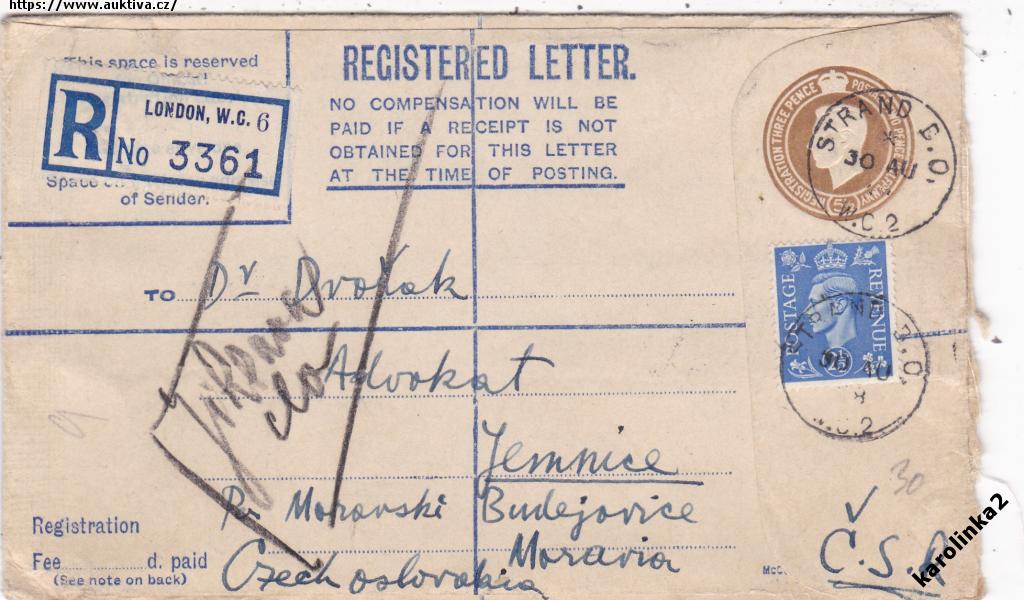 https://www.auktiva.cz/
This space is reserved
R
LONDON, W.C. 6
No 3361
Space
of Sender.
REGISTERED LETTER.
NO COMPENSATION WILL BE
PAID IF A RECEIPT IS NOT
OBTAINED FOR THIS LETTER
AT THE TIME OF POSTING.
REGISTRATION THREE PENCE
STRAND B.O.
30 AU
W.C.2
POSTAGE
REVENUE
2½
STRAND B.O.
30 AU
W.C.2
TO Dr Dvořak
Advokat
Jemnice
Pr. Moravski Budejovice
Moravia
Czechoslovakia
Č.S.R
30
Registration
Fee d. paid
(See note on back)
karolinka2